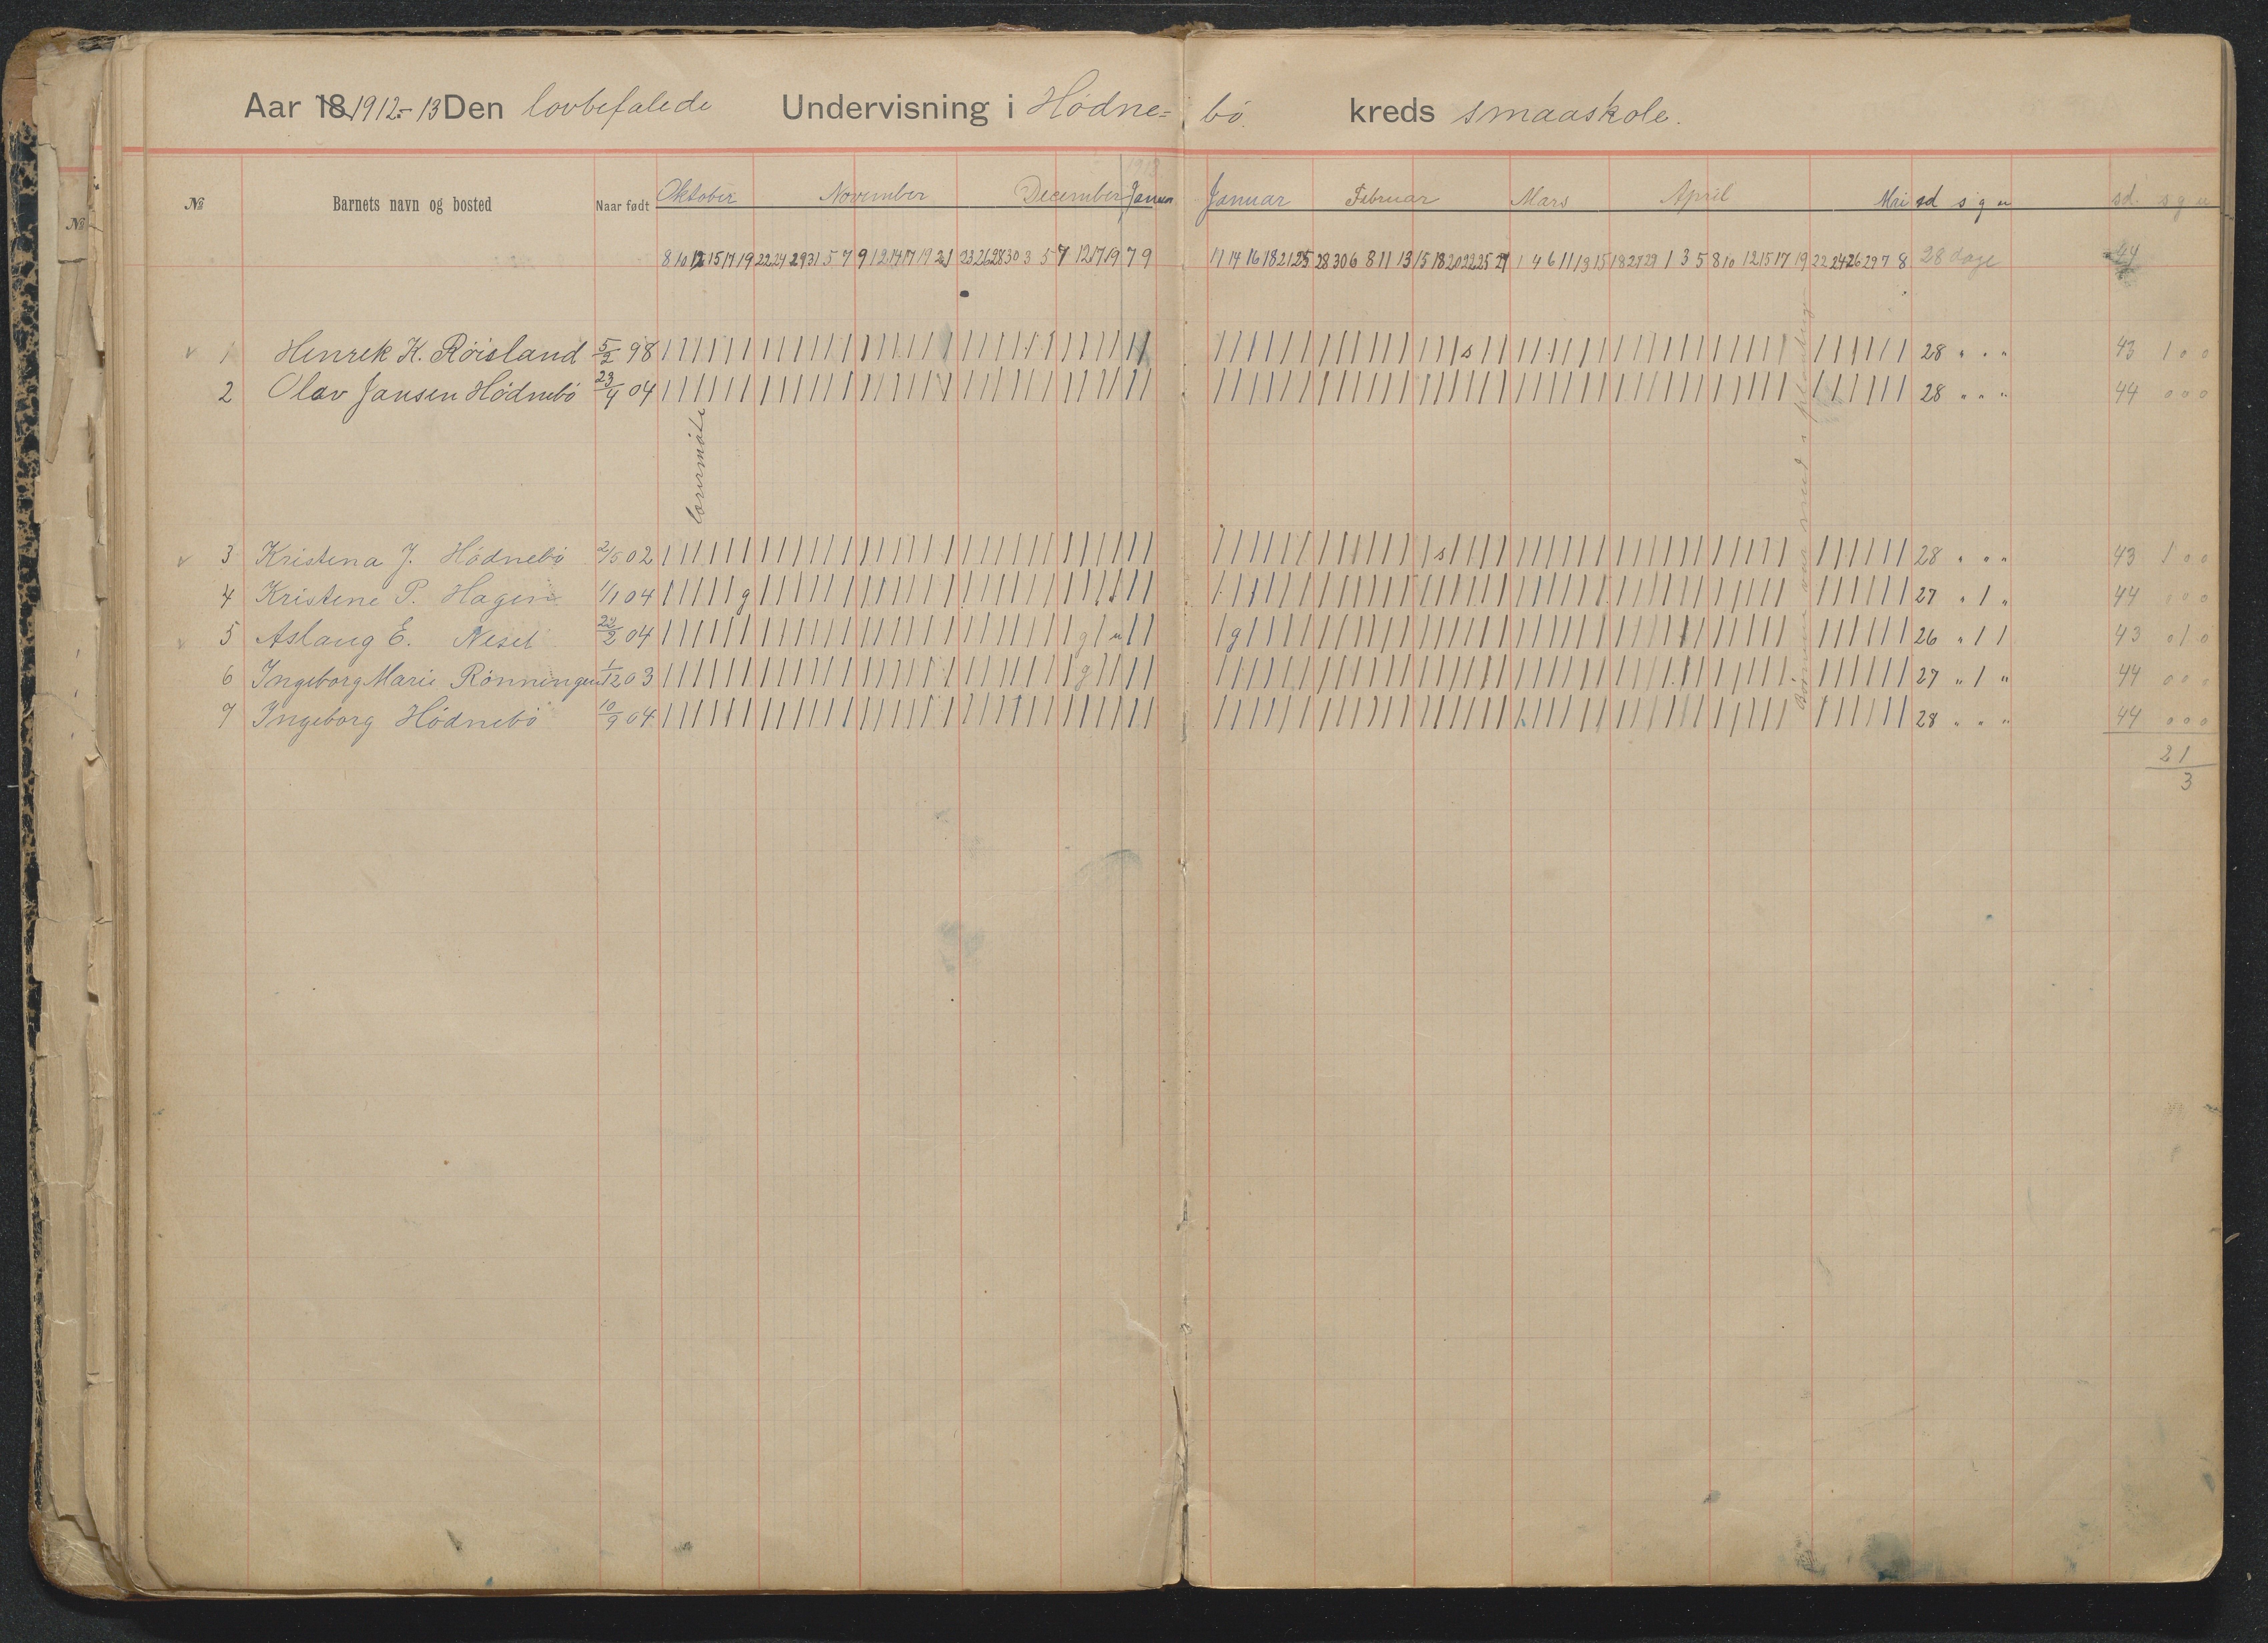 Aar 18 1912-13 Den lovbefalede Undervisning i Hødne= bø. kreds smaaskole.
1913
№ Barnets navn og bosted Naar født Oktober November December Januar Januar Februar Mars April Mai sd s g u sd. s g u
№
8 10 12 15 17 19 22 24 29 31 5 7 9 12 14 17 19 21 23 26 28 30 3 5 7 12 17 19 7 9 11 14 16 18 21 25 28 30 6 8 11 13 15 18 20 22 25 27 1 4 6 11 13 15 18 27 29 1 3 5 8 10 12 15 17 19 22 24 26 29 7 8 28 dage 44
v 1 Henrek K. Røisland 5/2 98 s 28 " " " 43 1 0 0
2 Olav Jansen Hødnebø 23/4 04 28 " " " 44 0 0 0
v 3 Kristena J. Hødnebø 2/5 02 s 28 " " " 43 1 0 0
4 Kristene P. Hagen 1/1 04 g 27 " 1 " 44 0 0 0
v 5 Aslaug E. Neset 22/2 04 g u g 26 " 1 1 43 0 1 0
6 Ingeborg Marie Rønningen 1/12 03 g 27 " 1 " 44 0 0 0
7 Ingeborg Hødnebø 10/9 04 28 " " " 44 0 0 0
2 1
3